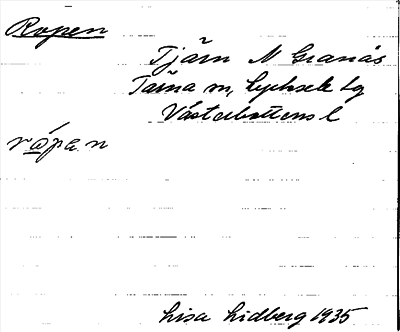 Ropen
Tjärn N Granås
Tärna sn, Lycksele lg
Västerbottens l
rópan
Lisa Lidberg 1935